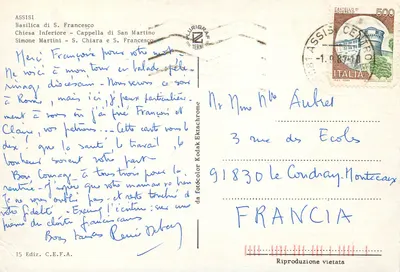 ASSISI
Basilica di S. Francesco
Chiesa Inferiore - Cappella di San Martino
Simone Martini - S. Chiara e S. Francesco
Merci Françoise pour votre mot
Me voici à mon tour en balade, pèle-
rinage diocésain. Nous serons ce soir
à Rome, mais ici, j'ai plus particulière-
ment à vous en j'ai prié François et
Claire, vos patrons... Cette carte vous
dira que la santé, le travail, le
bonheur soient votre part.
Bon Courage à tous trois pour la
rentrée. J'espère que votre maman va bien
Je ne vous oublie pas et reste touché de
votre fidélité. Excusez l'écriture: sur une
pierre du cloître franciscain
35 Ediz. C.E.F.A.
da fotocolor Kodak Ektachrome
500
ITALIA
ASSISI CENTRO
Mr Mme Mlle Aubret
3 rue des Ecoles
91830 le Coudray-Montceaux
FRANCIA
Riproduzione vietata